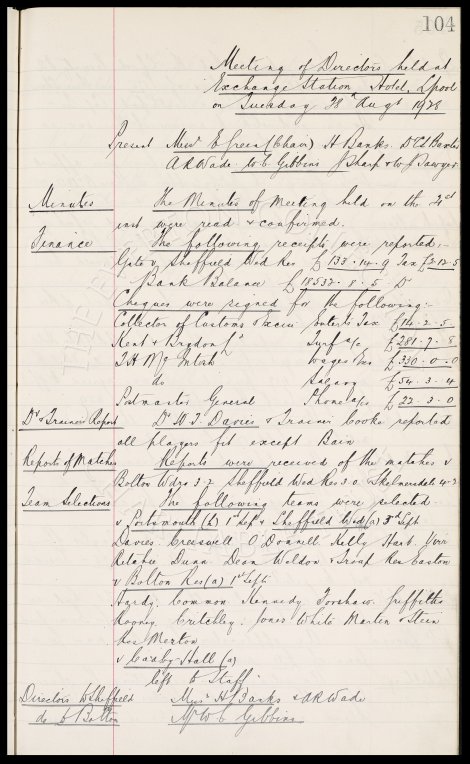 104
Meeting of Directors held at
Exchange Station Hotel, Lpool
on Tuesday 28th Augt 1928
Present Messrs E Green (Chair) H Banks.
A R Wade. W C Gibbins J Sharp & W J Sawyer
Minutes The Minutes of Meeting held on the 21st
inst were read & confirmed.
Finance The following receipts were reported:-
Gate v Sheffield Wed Res £138.14.9 Tax £2.12.5
Bank Balance £18532.8.5
Cheques were signed for the following:-
Collector of Customs & Excise Enterts Tax £14.2.5
Kent & Brydon Turf a/c £281.7.8
T H McIntosh Wages £330.0.0
do Salary £54.3.4
Postmaster General Phone a/cs £22.3.0
Dr & Trainers Report Dr W J Davies & Trainer Cooke reported
all players fit except Bain
Reports of Matches Reports were received of the matches v
Bolton Wdrs 3.2 Sheffield Wed Res 3.0 & Skelmersdale 4-2
Team Selections The following teams were selected
v Portsmouth (h) 1st Sept & Sheffield Wed (a) 3rd Sept
Davies. Cresswell O'Donnell Kelly Hart. Virr
Ritchie Dunn. Dean Weldon & Troup Res Easton
v Bolton Res (a) 1st Sept
Hardy. Common Kennedy. Griffiths
Rooney. Critchley. Jones White Martin & Stein
Res Meston
v Hall (a)
left to Staff.
Directors to Sheffield Messrs H Banks & A R Wade
do to Bolton Mr W C Gibbins